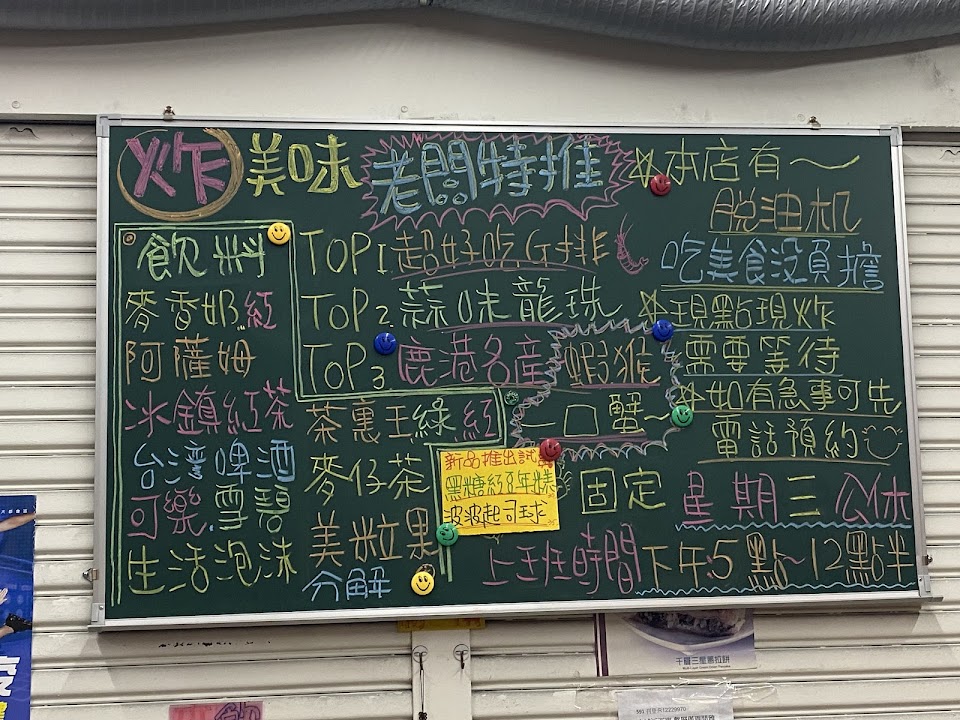 炸 美味 老闆特推
飲料
麥香奶.紅
阿薩姆
冰鎮紅茶
台灣啤酒
可樂.雪碧
生活泡沫
茶裏王綠.紅
麥仔茶
美粒果
分解
TOP1.超好吃G排
TOP2.蒜味龍珠
TOP3.鹿港名產 蝦猴
一口蟹~
新品推出試賣
黑糖紅8年糕
波波起司球
本店有~
脫油机
吃美食沒負擔
現點現炸
需要等待
如有急事可先
電話預約
固定 星期三公休
上班時間 下午:5點~12點半
千層三星馬拉糕